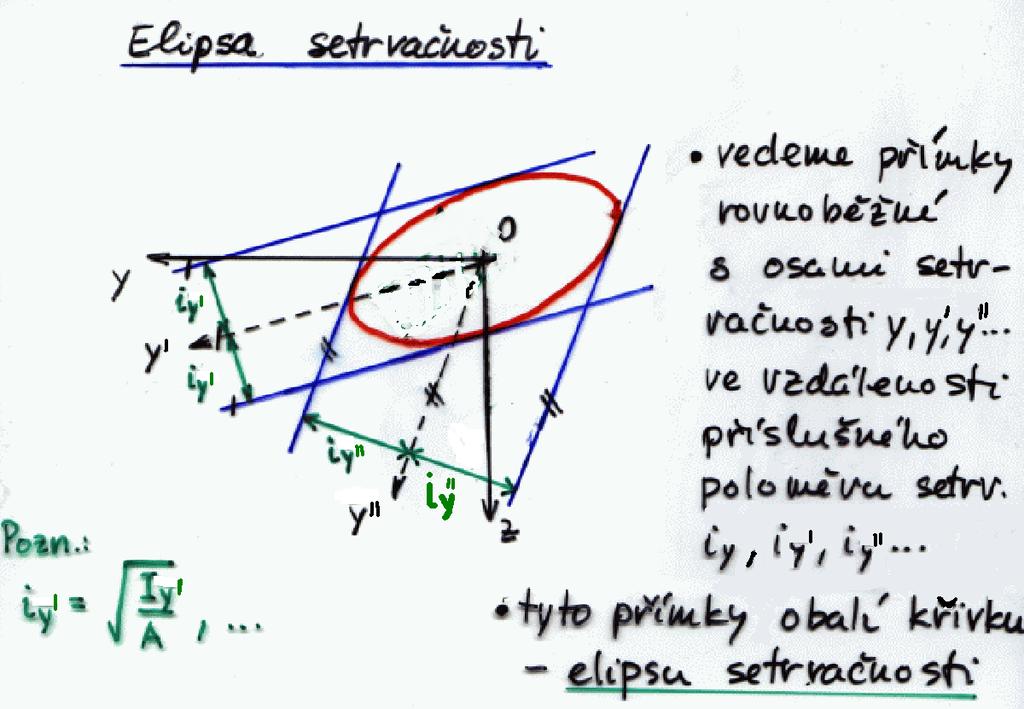 Elipsa setrvačnosti
• vedeme přímky
rovnoběžné
s osami setr-
vačnosti y, y', y''...
ve vzdálenosti
příslušného
poloměru setrv.
iy, iy', iy''...
• tyto přímky obalí křivku
- elipsu setrvačnosti
O
y
iy'
y'
iy'
iy''
iy''
y''
z
Pozn.:
iy' = √(Iy'/A) , ...